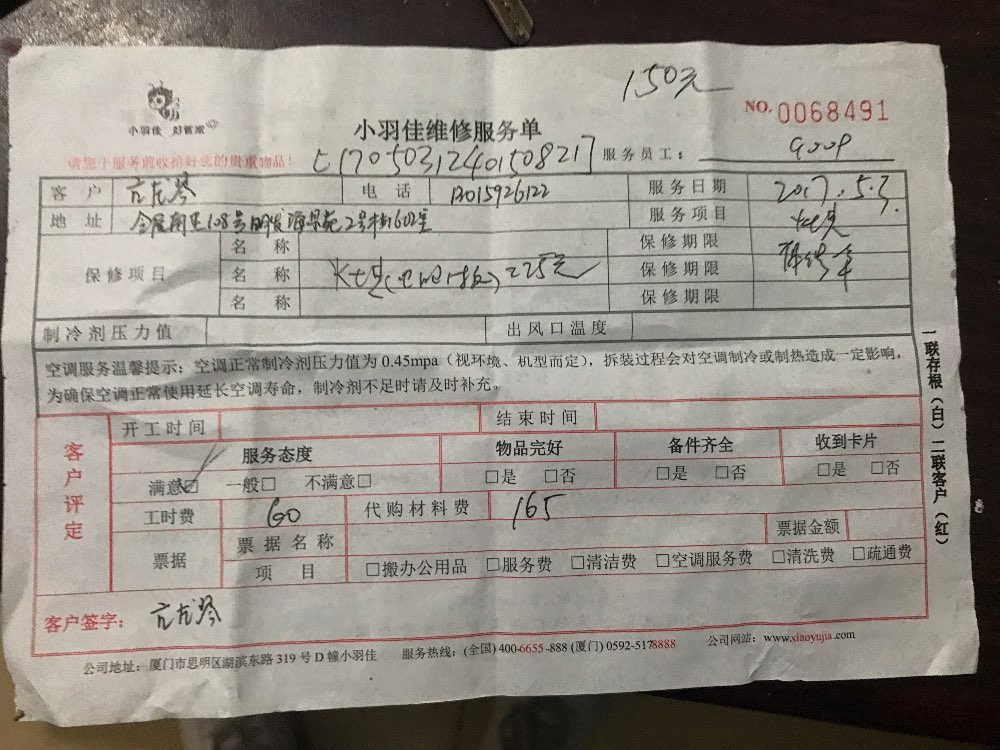 150元
NO. 0068491
小羽佳 好管家
小羽佳维修服务单
请您于服务前收拾好您的贵重物品！
C17050312401508217 服务员工：
客户 电话 13015926122 服务日期 2017.5.3.
地址 108号 2号楼602室 服务项目
保修项目
名称 保修期限
名称 225元 保修期限
名称 保修期限
制冷剂压力值 出风口温度
空调服务温馨提示：空调正常制冷剂压力值为 0.45mpa（视环境、机型而定），拆装过程会对空调制冷或制热造成一定影响，
为确保空调正常使用延长空调寿命，制冷剂不足时请及时补充。
一联存根（白）二联客户（红）
客户评定
开工时间 结束时间
服务态度 物品完好 备件齐全 收到卡片
满意☑ 一般□ 不满意□ □是 □否 □是 □否 □是 □否
工时费 60 代购材料费 165
票据 票据名称 票据金额
项目 □搬办公用品 □服务费 □清洁费 □空调服务费 □清洗费 □疏通费
客户签字：
公司地址：厦门市思明区湖滨东路 319 号 D 幢小羽佳 服务热线：(全国) 400-6655-888 (厦门) 0592-5178888 公司网站：www.xiaoyujia.com